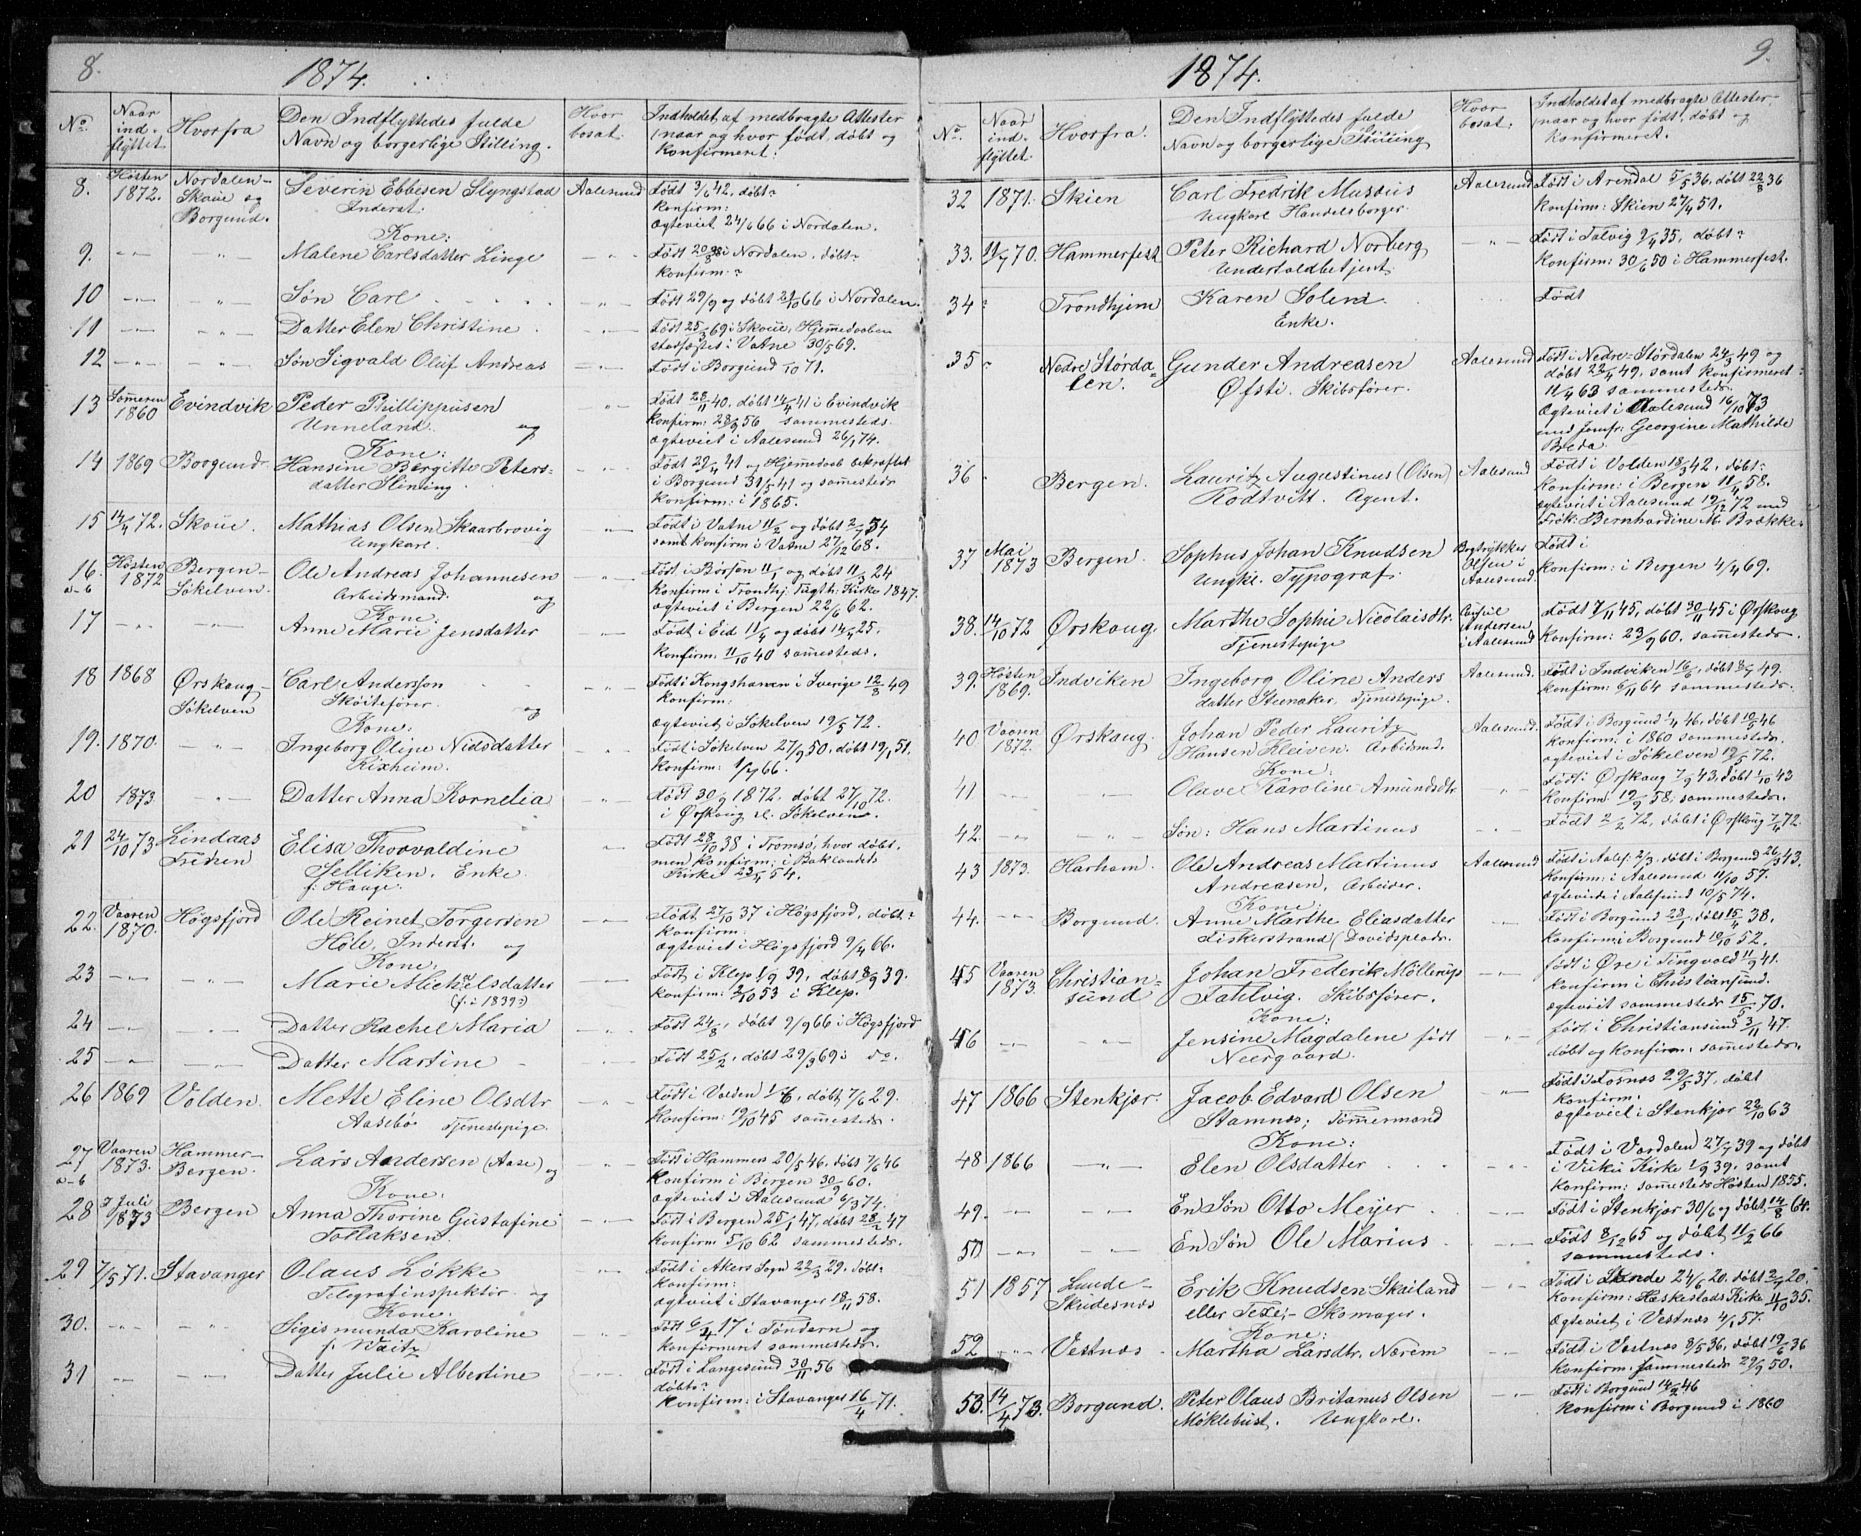 8.
1874.
No Naar ind- flyttet. Hvorfra Den Indflyttedes fulde Navn og borgerlige Stilling. Hvor bosat. Indholdet af medbragte Attester (naar og hvor født, døbt og konfirmeret.
8. Høsten 1872. Nordalen- Skoue og Borgund. Severin Ebbesen Slyngstad Aalesund Født 3/6 42, døbt?
Inderst. konfirm:
Kone: Ægteviet 24/6 66 i Nordalen.
9. Malene Carlsdatter Linge Født i Nordalen, døbt?
konfirm:?
10 Søn Carl Født 29/9 og døbt 21/10 66 i Nordalen.
11 Datter Elen Christine Født 25/3 69 i Skoue, Hjemmedaaben
stadfæstet i Vatne 30/5 69.
12 Søn Sigvald Oluf Andreas Født i Borgund /10 71.
13 Sommeren 1860 Evindvik Peder Phillippusen Født 28/11 40, døbt 14/4 41 i Evindvik
Unneland. og konfirm: 28/9 56 sammesteds.
Kone: Ægteviet i Aalesund 26/1 74.
14 1869 Borgund. Hansine Bergitte Peters- Født 29/4 41 og Hjemmedaab bekræftet
datter Slining. i Borgund 31/5 41 og sammesteds
konfirm: i 1865.
15 14/4 72. Skoue. Mathias Olsen Skaarbrovig Født i Vatne 11/2 og døbt 2/7 54
Ungkarl. samt konfirm i Vatne 27/12 68.
16. a-b Høsten 1872 Bergen- Søkelven. Ole Andreas Johannesen Født i Børsen 11/1 og døbt 11/3 24
Arbeidsmand. og Konfirm i Trondhj. Tugth: Kirke 1847.
Kone: Ægteviet i Bergen 22/6 62.
17 Anne Marie Jensdatter Født i Eid 11/4 og døbt 14/4 25.
Konfirm: 11/10 40 sammesteds.
18 1868 Ørskoug- Søkelven Carl Andersson Født i Kongshavn i Sverige 12/8 49
Skøitefører. og konfirm:
Kone: Ægteviet i Søkelven 19/5 72.
19. 1870. Ingeborg Oline Nidsdatter Født i Søkelven 27/9 50, døbt 19/1 51.
Rixheim. konfirm: 1/7 66.
20 1873 Datter Anna Kornelia Født 30/9 1872, døbt 27/10 72.
i Ørskoug el. Søkelven.
21 24/10 73 Lindaas Elisa Thorvaldine Født 28/10 38 i Tromsø, hvor døbt,
Selliken. Enke men konfirm: i Baklandets
f: Hauge. Kirke 23/4 54.
22. Vaaren 1870. Høgsfjord Ole Reinet Torgersen Født 27/10 37 i Høgsfjord, døbt?
Høle, Inderst. og konfirm:
Kone: Ægteviet i Høgsfjord 9/4 66.
23 Marie Michaelsdatter Født i Klep 1/9 39, døbt 8/9 39.
(f: i 1839) konfirm: 2/10 53 i Klep.
24 Datter Rachel Maria Født 24/8, døbt 9/9 66 i Høgsfjord
25 Datter Martine Født 25/2, døbt 29/3 69 i do.
26 1869 Volden. Mette Eline Olsdtr Født i Volden 1/6, døbt 7/6 29.
Aasebø Tjenestepige. Konfirm: 19/10 45 sammesteds.
27 a-b Vaaren 1873. Hammer- Bergen. Lars Andersen (Aase) og Født i Hammer 20/5 46, døbt 7/6 46
Konfirm i Bergen 30/9 60.
Kone: Ægteviet i Aalesund 6/3 74.
28 7 Juli 1873 Bergen Anna Thorine Gustafine Født i Bergen 25/1 47, døbt 28/2 47
Tollaksen. konfirm 5/10 62 sammesteds.
29 7/5 71. Stavanger Olaus Løkke Født i Akers Sogn 22/3 29. døbt?
Telegrafinspektør og Konfirm:
Kone: Ægteviet i Stavanger 18/11 58.
30. Sigismunda Karoline Født 6/4 17 i Tøndern og
f: Waitz Konfirmeret sammesteds.
31 Datter Julie Albertine Født i Langesund 30/11 56
døbt?
konfirm: i Stavanger 16/4 71.
9.
1874.
No. Naar ind- flyttet. Hvorfra. Den Indflyttedes fulde Navn og borgerlige Stilling Hvor bosat. Indholdet af medbragte Attester, (naar og hvor født, døbt og konfirmeret.
32 1871. Skien Carl Fredrik Musæus Aalesund Født i Arendal 5/5 36, døbt 22/8 36
Ungkarl Handelsborger. Konfirm: Skien 27/4 51.
33. 11/7 70. Hammerfest Peter Richard Norberg Født i Talvig 9/4 35, døbt?
Undertoldbetjent. konfirm: 30/6 50 i Hammerfest.
34 Trondhjem Karen Solem Født
Enke.
35 Nedre Størda- len. Gunder Andreasen Aalesund Født i Nedre-Størdalen 24/3 49 og
Øfsti. Skibsfører. døbt 22/4 49, samt konfirmeret
11/4 63 sammesteds.
Ægteviet i Aalesund 16/10 73
med Jomfr: Georgine Mathilde
Breda.
36 Bergen. Lauritz Augustinus (Olsen) Aalesund Født i Volden 18/3 42, døbt?
Rødtvitt. Agent. Konfirm: i Bergen 11/4 58.
Ægteviet i Aalesund 19/12 72 med
Frøk: Bernhardine M. Brække.
37 Mai 1873 Bergen. Sophus Johan Knudsen Bogtrykker Olsen i Aalesund. Født i
Ungk. Typograf. Konfirm: i Bergen 4/4 69.
38. 14/10 72 Ørskoug. Marthe Sophie Nicolaisdtr. Consul Andersen i Aalesund Født 7/11 45, døbt 30/11 45 i Ørskoug
Tjenestepige Konfirm: 23/9 60. sammesteds.
39. Høsten 1869. Indviken Ingeborg Oline Anders Aalesund. Født i Indviken 16/6, døbt 8/7 49.
datter Steenaker, Tjenestepige. Konfirm: 6/11 64 sammesteds.
40 Vaaren 1872. Ørskoug. Johan Peder Lauritz Aalesund. Født i Borgund 1/4 46, døbt 19/5 46
Hansen Kleiven. Arbeidsmd. Konfirm, i 1860 sammesteds.
Kone: Ægteviet i Søkelven 19/5 72.
41 Olave Karoline Amundsdtr Født i Ørskoug 7/9 43, døbt 1/10 43
Konfirm 19/9 58; sammesteds.
42. Søn: Hans Martinus Født 2/2 72, døbt i Ørskoug 7/4 72.
43 1873. Harham. Ole Andreas Martinus Aalesund Født i Aalsd 2/3, døbt i Borgund 26/3 43.
Andreasen, Arbeider. Konfirm: i Aalesund 11/10 57.
Kone: Ægteviede i Aalesund 10/5 74.
44. Borgund. Anne Marthe Eliasdatter Født i Borgund 23/1, døbt 15/4 38.
Fiskerstrand (Davidsplads. Konfirm: i Borgund 19/10 52.
45 Vaaren 1873. Christian- sund Johan Frederik Möllerup født i Øre i Tingvold 11/9 41.
Fahlvig. Skibsfører. konfirm i Christiansund.
Kone: Ægteviet sammesteds 15/5 70.
46 Jensine Magdalene født født i Christiansund 3/11 47.
Neergaard. døbt og konfirm: sammesteds.
47 1866 Stenkjær. Jacob Edvard Olsen Født i Fosnæs 29/5 37, døbt
Stamnes; Tømmermand konfirm:
Kone: Ægteviet i Stenkjær 22/10 63
48 1866 Elen Olsdatter Født i Værdalen 27/7 39 og døbt
i Vuku Kirke 1/9 39, samt
konfirm: sammesteds Høsten 1855.
49. En Søn Otto Meyer Født i Stenkjær 30/6 og døbt 14/8 64.
50 En Søn Ole Marius Født 8/12 65 og døbt 11/2 66
sammesteds.
51 1857 Lunde- Skudesnæs Erik Knudsen Skailand Født i Lunde 24/6 20. døbt 2/7 20.
eller Texe;- Skomager. konfirm: Heskestads Kirke 11/10 35.
Kone: Ægteviet i Vestnæs 4/1 57.
52 Vestnæs Martha Larsdtr. Nærem Født i Vestnæs 8/5 36, døbt 19/6 36
konfirm: sammesteds 29/9 50.
53. 14/4 73. Borgund. Peter Olaus Britanus Olsen Født i Borgund 14/2 46
Møklebust. Ungkarl. Konfirm i Borgund i 1860